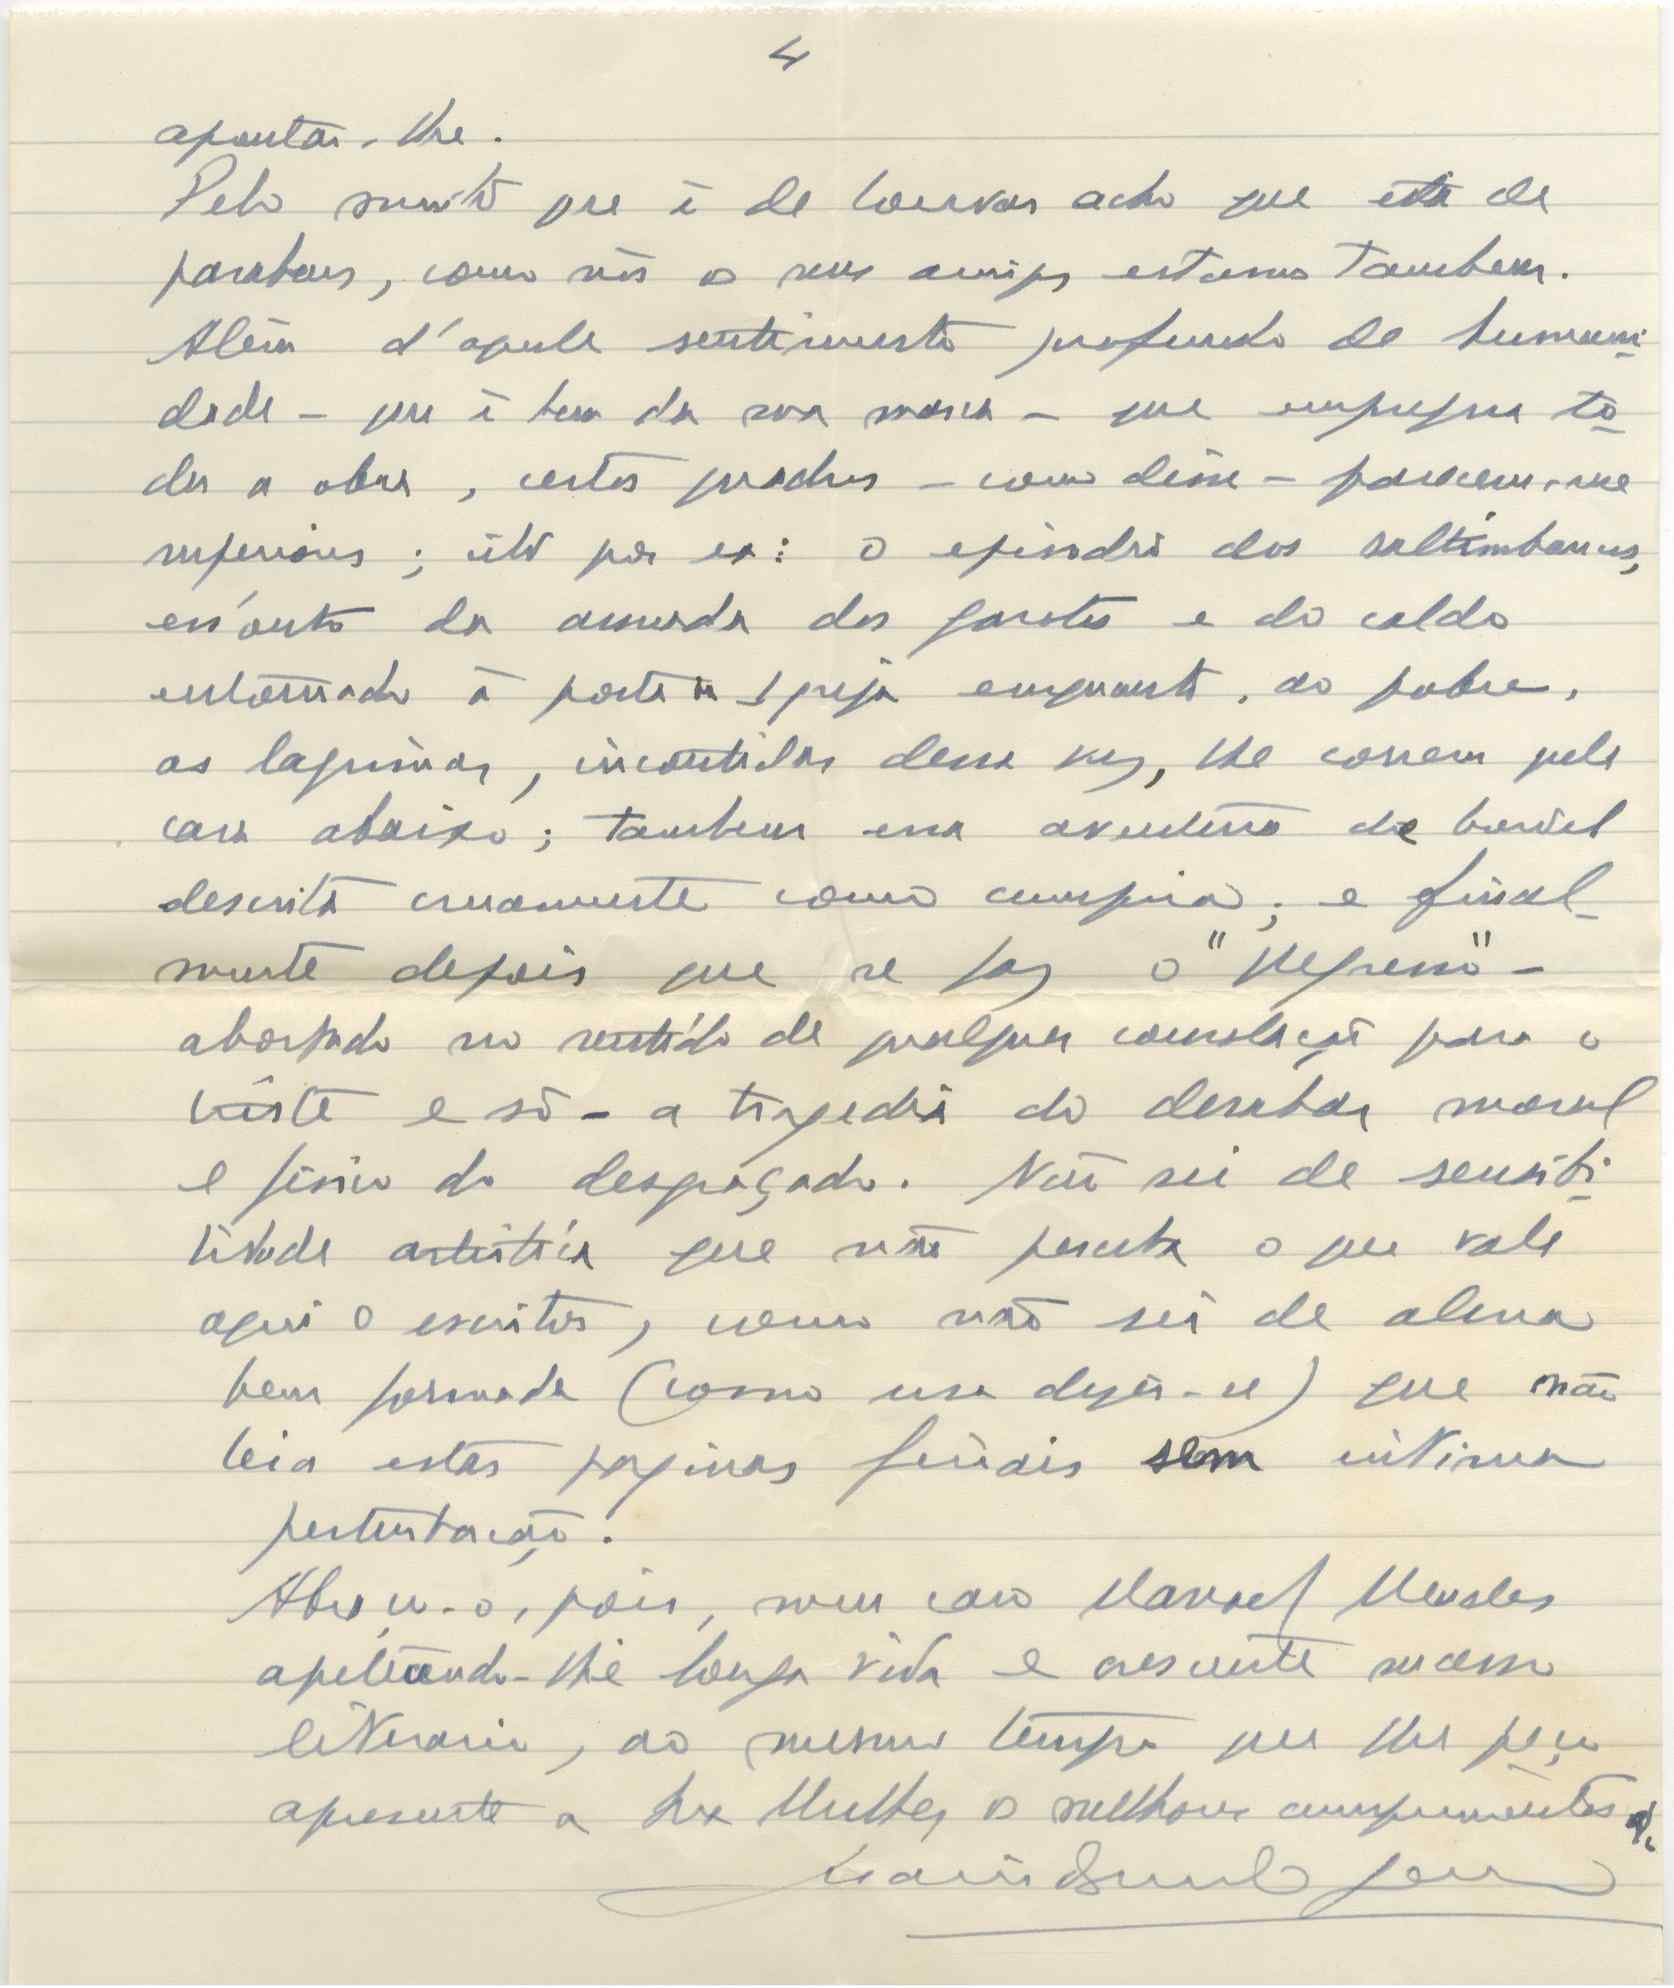 4
apontar-lhe.
Pelo muito que é de louvar acho que está de
parabens, como nós os seus amigos estamos tambem.
Além d'aquele sentimento profundo de humani-
dade – que é bem da sua marca – que impregna to-
da a obra, certos quadros – como disse – parecem-me
superiores; cito por ex: o episodio dos saltimbancos,
conjunto da assuada dos garotos e do caldo
entornado á porta da Igreja emquanto, ao pobre,
as lagrimas, incontidas dessa vez, lhe correm pela
cara abaixo; tambem essa aventura de bordel
descrita cruamente como cumpria; e final-
mente depois que se faz o "Regresso" –
abortado no sentido de qualquer consolação para o
triste e só – a tragedia do desabar moral
e fisico do desgraçado. Não sei de sensibi-
lidade artistica que não perceba o que vale
aqui o escritor, como não sei de alma
bem formada (como usa dizer-se) que não
leia estas paginas finais sem intima
perturbação.
Abraço-o, pois, meu caro Manoel Mendes
apetecendo-lhe longa vida e crescente sucesso
literario, ao mesmo tempo que lhe peço
apresente a sua Mulher os melhores cumprimentos